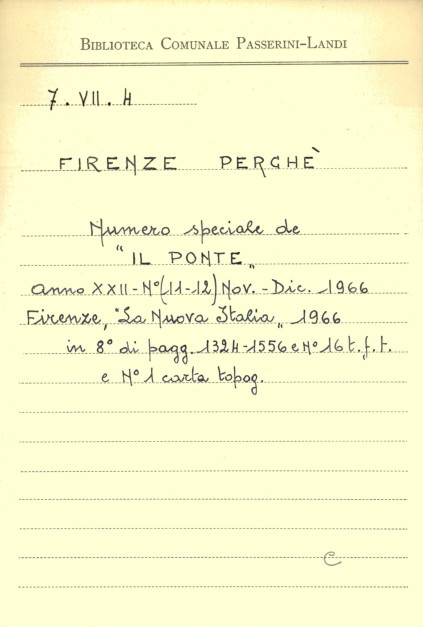 BIBLIOTECA COMUNALE PASSERINI-LANDI
7. VII. 4
FIRENZE PERCHÈ
Numero speciale de
"IL PONTE"
anno XXII - N° (11-12) Nov. - Dic. 1966
Firenze, "La Nuova Italia", 1966
in 8° di pagg. 1324-1556 e N° 16 t. f. t.
e N° 1 carta topog.
C